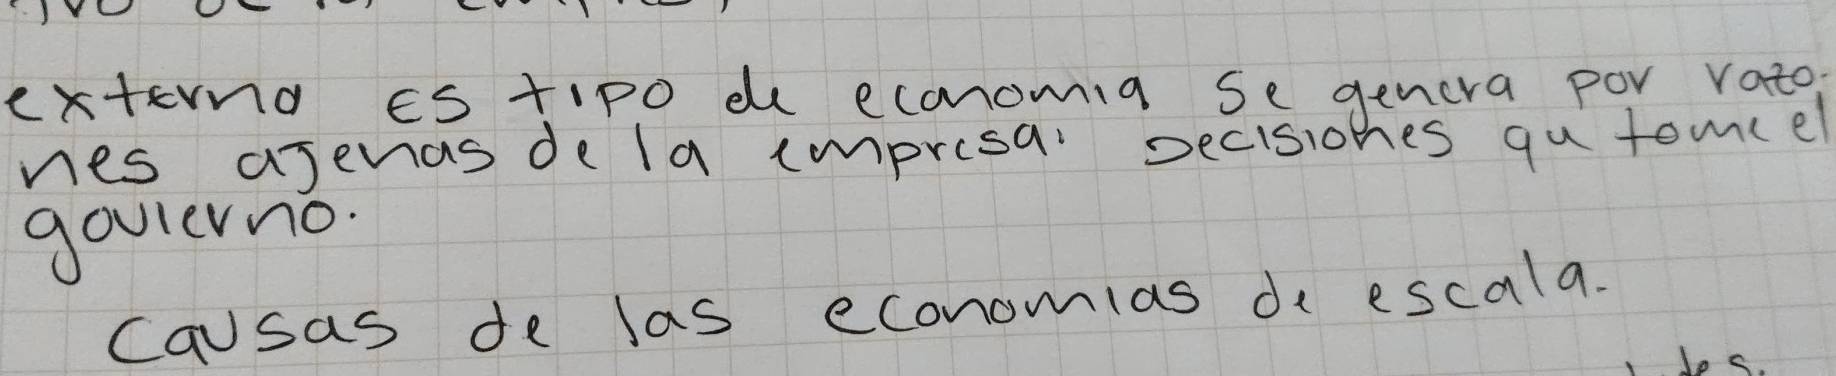 externa Es tipo de economia se genera por razo-
nes ajenas de la empresa: Decisiones qu tome el
govierno.
Causas de las economias de escala.
des.